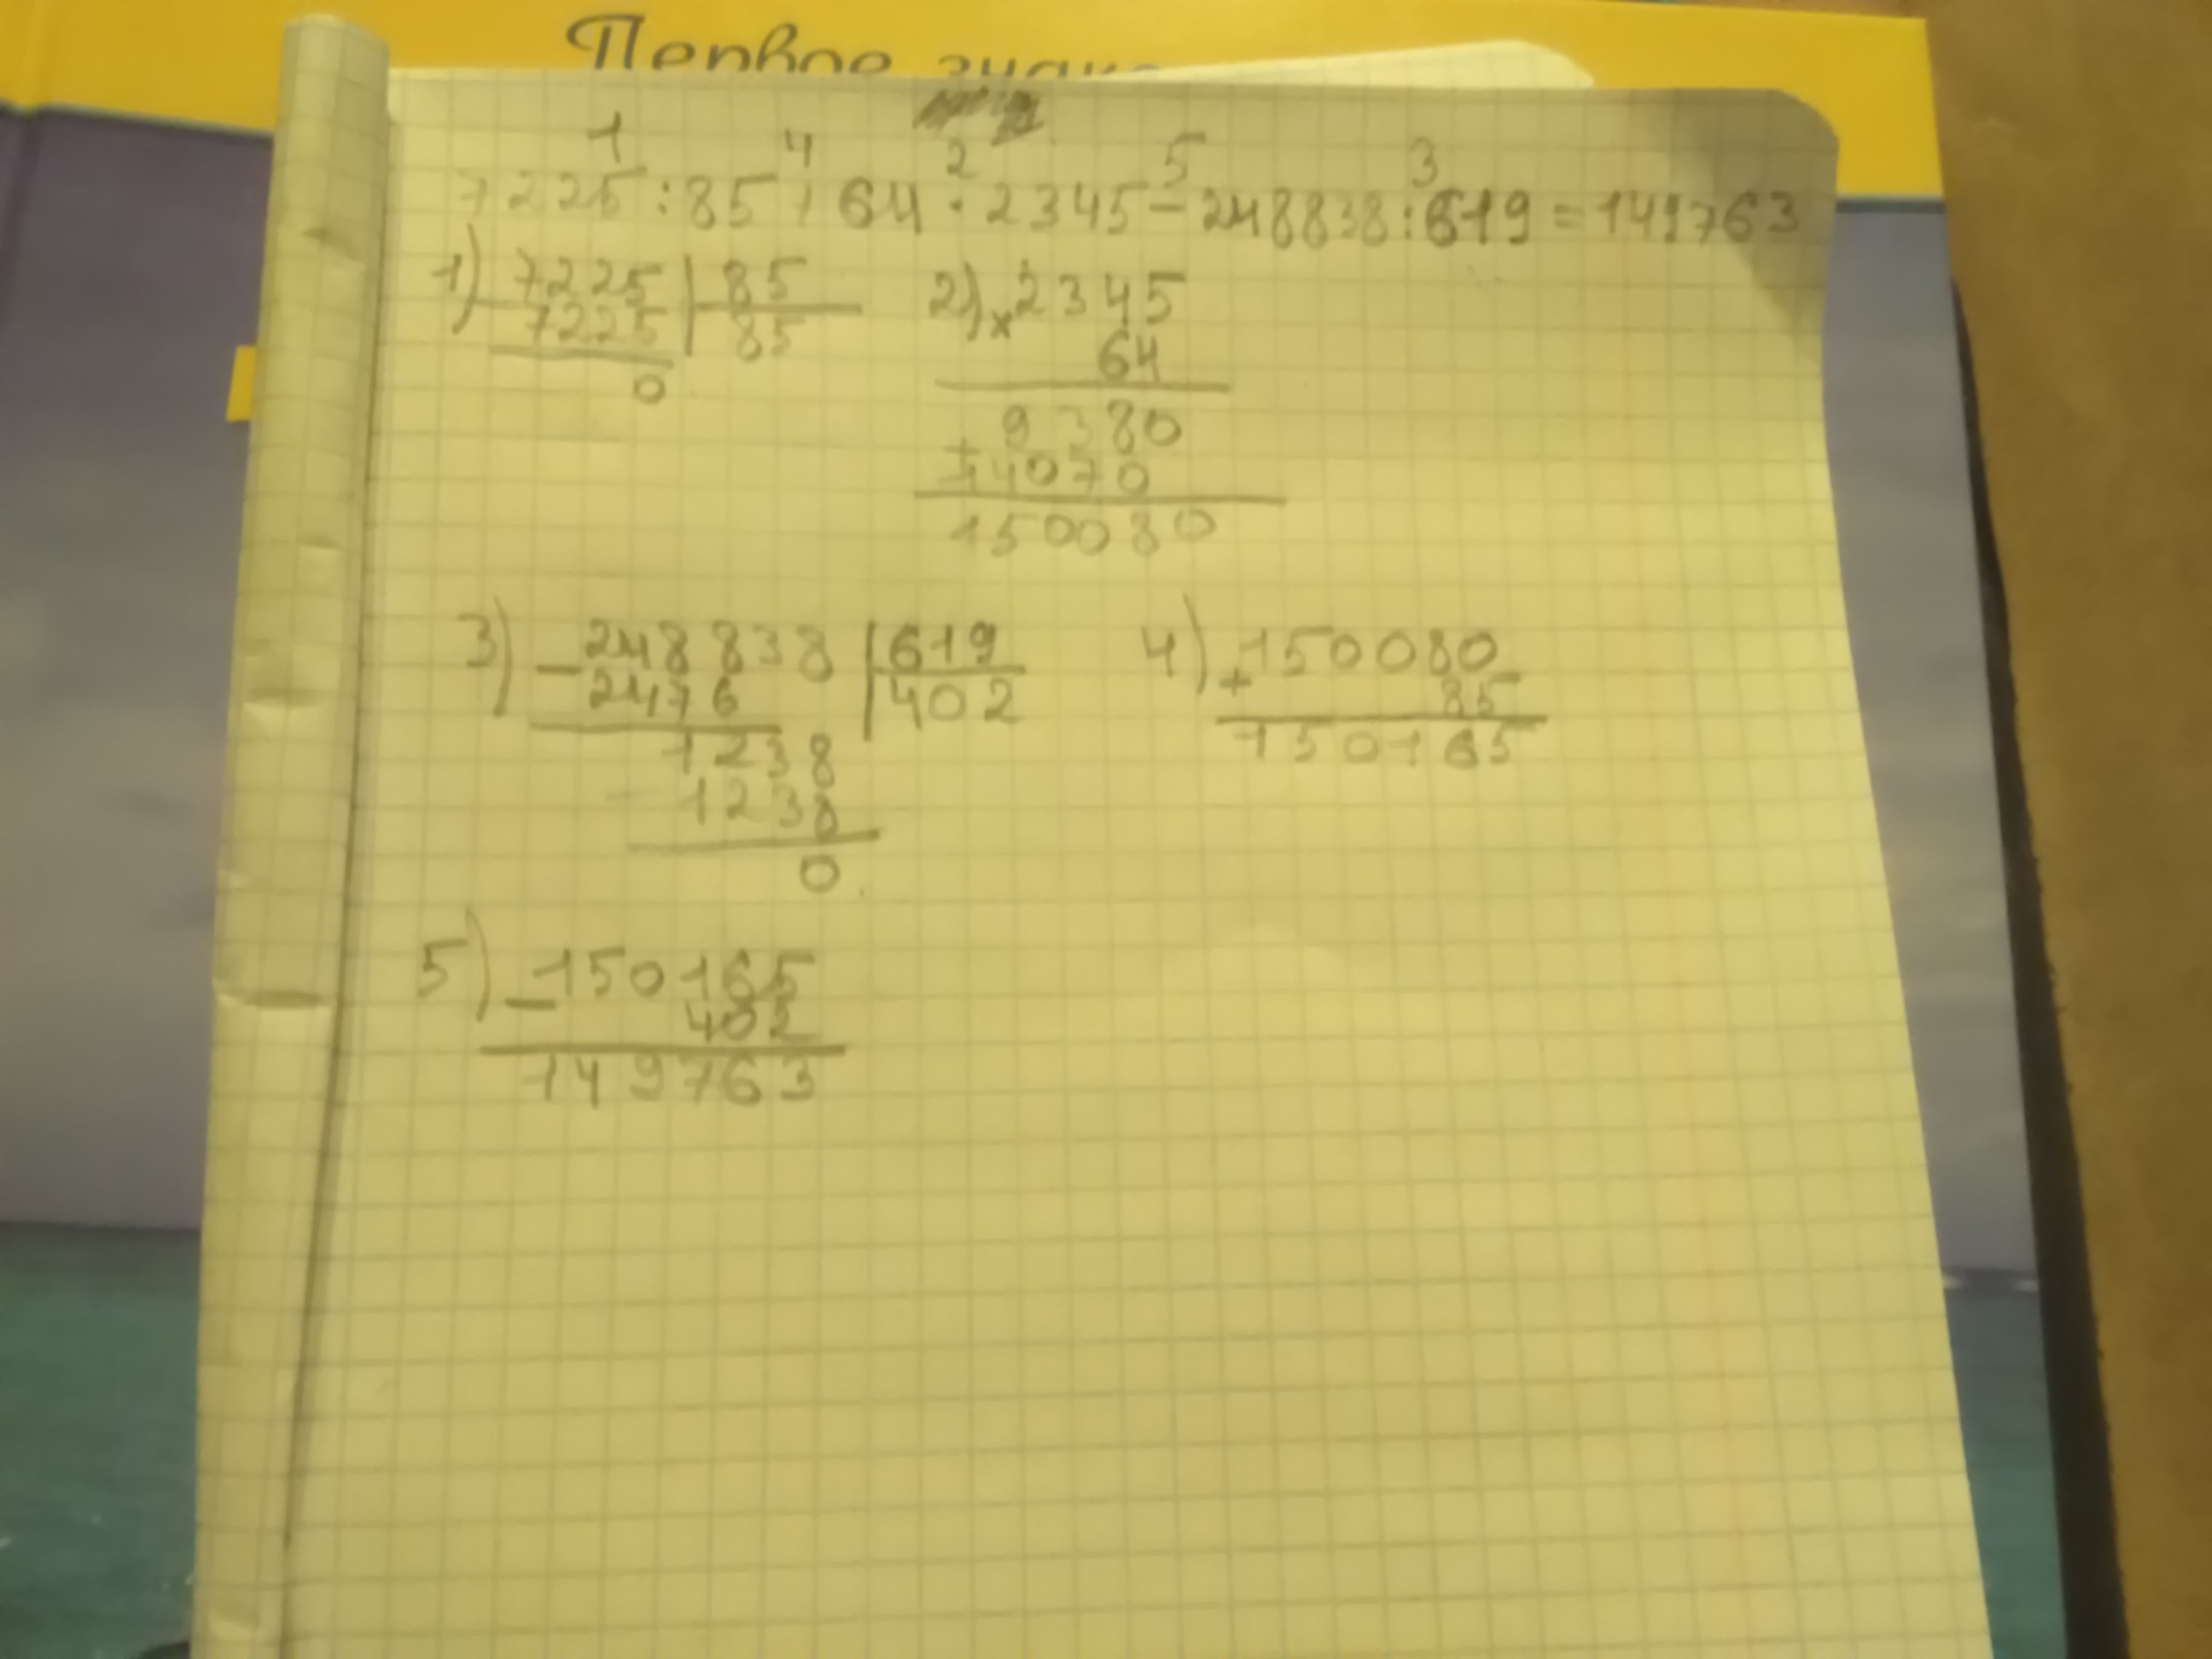 Первое
1 4 2 5 3
7225:85+64·2345-248838:619=149763
1) 7225 | 85 2) × 2345
7225 | 85 64
0 9380
+ 14070
150080
3) - 248838 | 619 4) + 150080
2476 | 402 85
1238 150165
1238
0
5) - 150165
402
149763